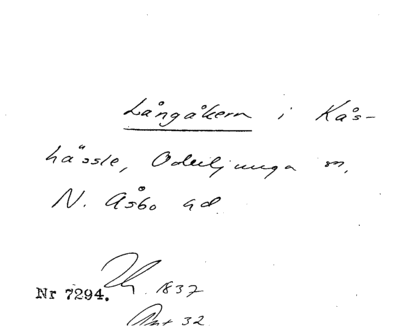 Långåkern i Kås-
hässle, Oderljunga sn,
N. Åsbo hd
Nr 7294. 1837
Akt 32